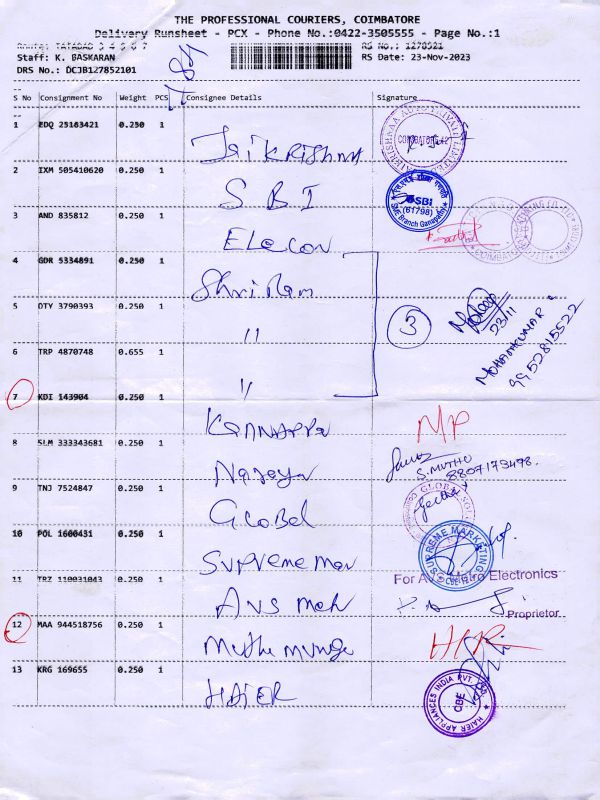 THE PROFESSIONAL COURIERS, COIMBATORE
Delivery Runsheet - PCX - Phone No.:0422-3505555 - Page No.:1
Route: TATABAD 3 4 6 7 RS No.: 1278521
Staff: K. BASKARAN RS Date: 23-Nov-2023
DRS No.: DCJB127852101
S No Consignment No Weight PCS Consignee Details Signature
1 EDQ 25183421 0.250 1 Jai Krishna
COIMBATORE-12
2 IXM 505410620 0.250 1 SBI
SBI
(61798)
SME Branch Ganapathy
3 AND 835812 0.250 1 Elecon
4 GDR 5334891 0.250 1 Shri Ram
5 OTY 3790393 0.250 1 "
3
23/11
MOHANKUMAR
9952815522
6 TRP 4870748 0.655 1 "
7 KDI 143904 0.250 1 KANNAPPA
8 SLM 333343681 0.250 1 Narayan
S.MUTHU
8807173498.
9 TNJ 7524847 0.250 1 Global
GLOBAL
10 POL 1600431 0.250 1 Supreme mar
SUPREME MARKETING
11 TRZ 110031043 0.250 1 AVS meh
For AVS Electronics
Proprietor
12 MAA 944518756 0.250 1
13 KRG 169655 0.250 1 HAIER
HAIER APPLIANCES INDIA PVT. LTD.
CBE